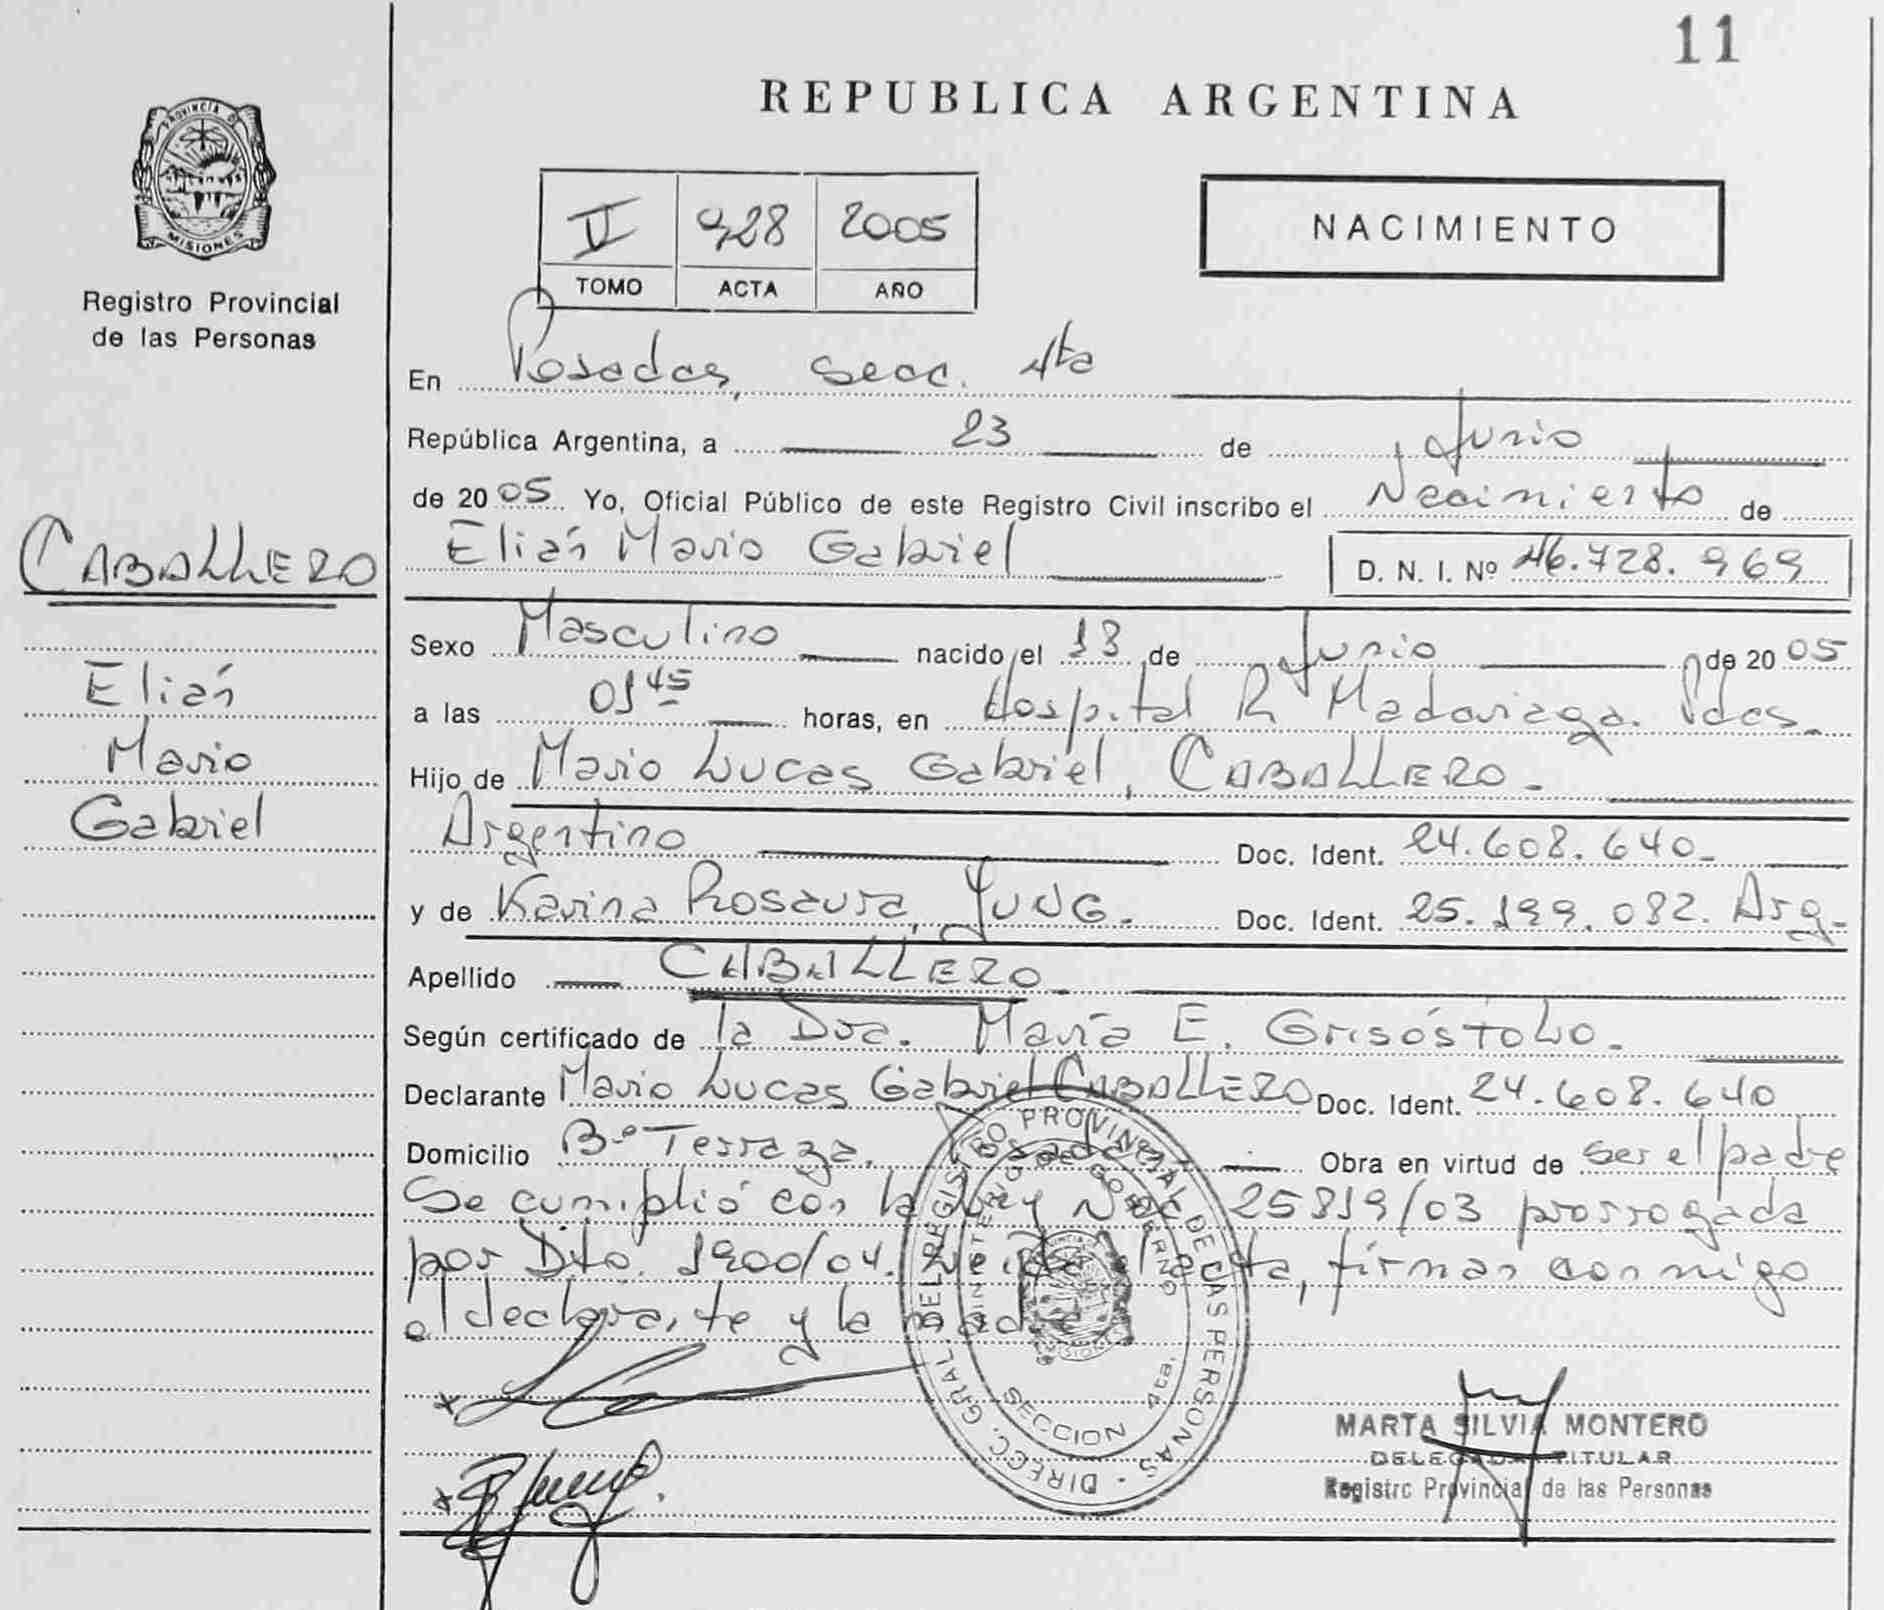 11
REPUBLICA ARGENTINA
PROVINCIA DE
MISIONES
Registro Provincial
de las Personas
V 928 2005
TOMO ACTA AÑO
NACIMIENTO
En Posadas, Secc. 4ta
República Argentina, a 23 de Junio
de 2005 Yo, Oficial Público de este Registro Civil inscribo el Nacimiento de
CABALLERO
Elián Mario Gabriel D. N. I. Nº 46.728.969
Sexo Masculino nacido el 13 de Junio de 2005
Elián
a las 01 45 horas, en Hospital R Madariaga. Pdas.
Mario
Hijo de Mario Lucas Gabriel, CABALLERO.
Gabriel
Argentino Doc. Ident. 24.608.640.
y de Karina Rosaura, JUNG. Doc. Ident. 25.199.082. Arg.
Apellido CABALLERO
Según certificado de la Dra. María E. GRISÓSTOLO.
Declarante Mario Lucas Gabriel CABALLERO Doc. Ident. 24.608.640
Domicilio Bº Terraza. Posadas Obra en virtud de ser el padre
Se cumplió con la Ley Nac 25819/03 prorrogada
por Dto. 1900/04. Leida el acta, firman conmigo
el declarante y la madre
DIRECC. GRAL. DEL REGISTRO PROVINCIAL DE LAS PERSONAS
MINISTERIO DE GOBIERNO
SECCION 4ta.
MARTA SILVIA MONTERO
DELEGADA TITULAR
Registro Provincial de las Personas